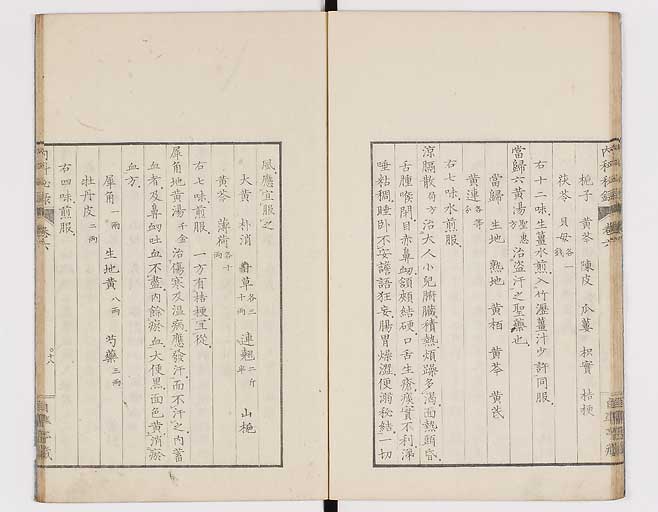 梔子 黄芩 陳皮 瓜蔞 枳實 桔梗
茯苓 貝母各一錢
右十二味生薑水煎入竹瀝薑汁少許同服
當歸六黄湯聖惠方 治盗汗之聖藥也
當歸 生地 熟地 黄栢 黄芩 黄芪
黄連各等分
右七味水煎服
涼膈散局方 治大人小兒腑臟積熱煩躁多渇面熱頭昏
舌腫喉閉目赤鼻衂頷頰結硬口舌生瘡痰實不利涕
唾粘稠睡卧不安譫語狂妄腸胃燥澀便溺秘結一切
風應宜服之
大黄 朴消 甘草各二十兩 連翹二斤半 山梔
黄芩 薄荷各十
右七味煎服 一方有桔梗宜從
犀角地黄湯千金 治傷寒及温病應發汗而不汗之内蓄
血者及鼻衂吐血不盡内餘瘀血大便黒面色黄消瘀
血方
犀角一兩 生地黄八兩 芍藥三兩
牡丹皮二兩
右四味煎服
内科秘録 卷六
十八